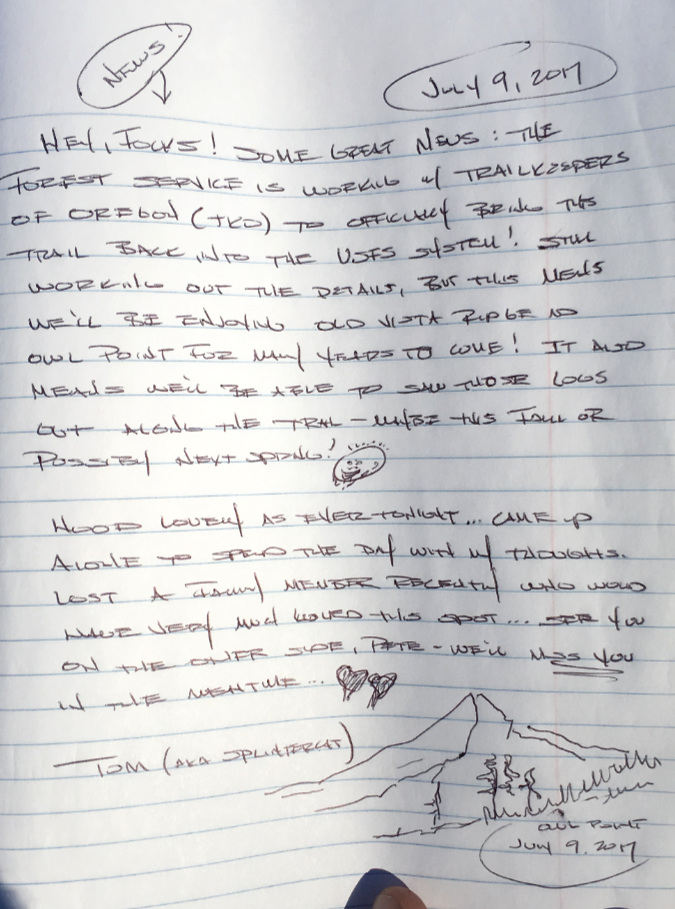 NEWS!
JULY 9, 2017
HEY, FOLKS! SOME GREAT NEWS: THE
FOREST SERVICE IS WORKING W/ TRAILKEEPERS
OF OREGON (TKO) TO OFFICIALLY BRING THIS
TRAIL BACK INTO THE USFS SYSTEM! STILL
WORKING OUT THE DETAILS, BUT THIS MEANS
WE'LL BE ENJOYING OLD VISTA RIDGE AND
OWL POINT FOR MANY YEARS TO COME! IT ALSO
MEANS WE'LL BE ABLE TO SAW THOSE LOGS
OUT ALONG THE TRAIL - MAYBE THIS FALL OR
POSSIBLY NEXT SPRING!
HOOD LOVELY AS EVER TONIGHT... CAME UP
ALONE TO SPEND THE DAY WITH MY THOUGHTS.
LOST A FAMILY MEMBER RECENTLY WHO WOULD
HAVE VERY MUCH LOVED THIS SPOT... SEE YOU
ON THE OTHER SIDE, PETE - WE'LL MISS YOU
IN THE MEANTIME...
TOM (AKA SPLINTERCAT)
OWL POINT
JULY 9, 2017